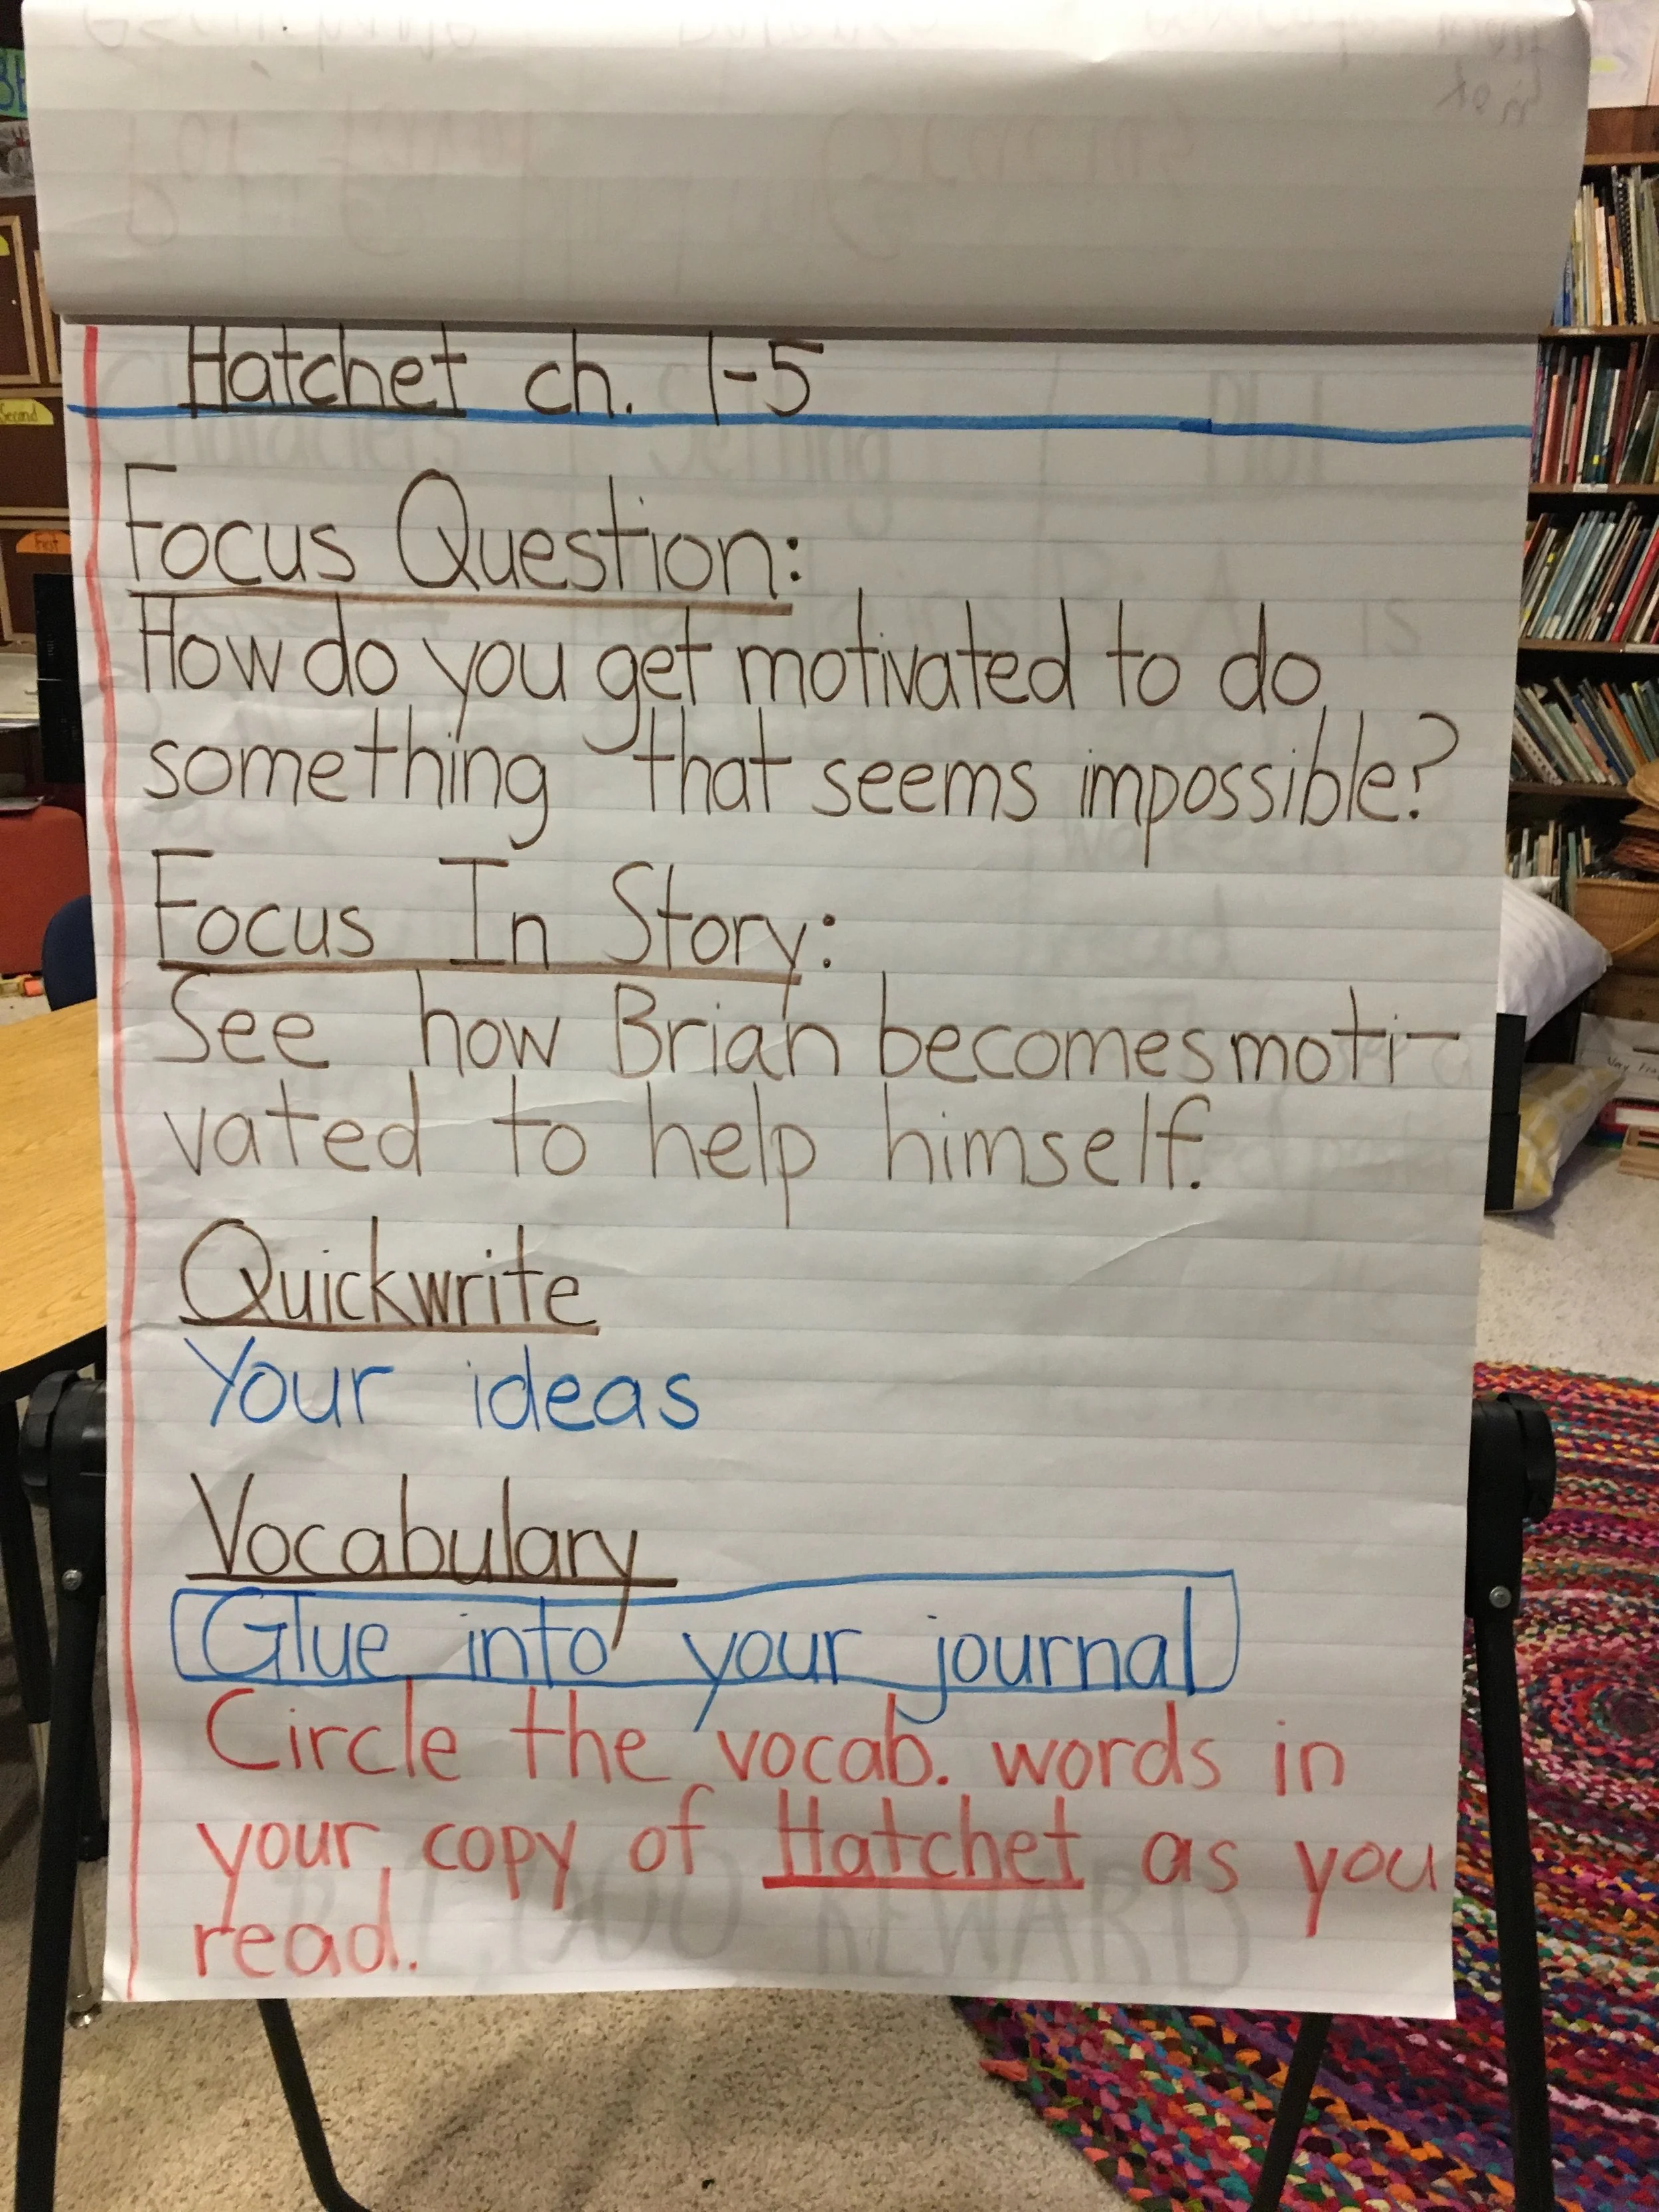 Hatchet ch. 1-5
Focus Question:
How do you get motivated to do
something that seems impossible?
Focus In Story:
See how Brian becomes moti-
vated to help himself.
Quickwrite
Your ideas
Vocabulary
Glue into your journal
Circle the vocab. words in
your copy of Hatchet as you
read.
Second
First
Characters
Setting
Plot
REWARD